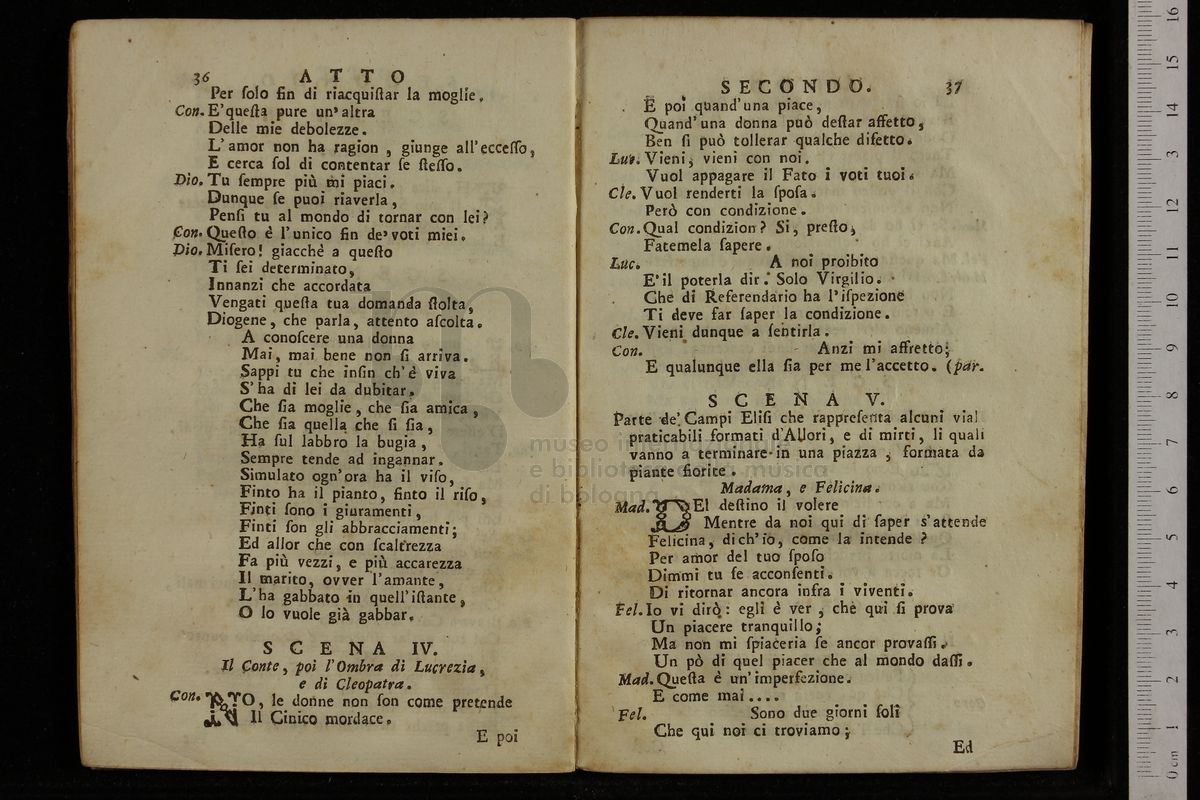 36 ATTO
Per ſolo fin di riacquiſtar la moglie.
Con. E' queſta pure un' altra
Delle mie debolezze.
L' amor non ha ragion, giunge all' ecceſſo,
E cerca ſol di contentar ſe ſteſſo.
Dio. Tu ſempre più mi piaci.
Dunque ſe puoi riaverla,
Penſi tu al mondo di tornar con lei?
Con. Queſto è l'unico fin de' voti miei.
Dio. Miſero! giacchè a queſto
Ti ſei determinato,
Innanzi che accordata
Vengati queſta tua domanda ſtolta,
Diogene, che parla, attento aſcolta.
A conoſcere una donna
Mai, mai bene non ſi arriva.
Sappi tu che inſin ch'è viva
S'ha di lei da dubitar.
Che ſia moglie, che ſia amica,
Che ſia quella che ſi ſia,
Ha ſul labbro la bugia,
Sempre tende ad ingannar.
Simulato ogn'ora ha il viſo,
Finto ha il pianto, finto il riſo,
Finti ſono i giuramenti,
Finti ſon gli abbracciamenti;
Ed allor che con ſcaltrezza
Fa più vezzi, e più accarezza
Il marito, ovver l'amante,
L'ha gabbato in quell'iſtante,
O lo vuole già gabbar.
SCENA IV.
Il Conte, poi l'Ombra di Lucrezia,
e di Cleopatra.
Con. NO, le donne non ſon come pretende
Il Cinico mordace.
E poi
SECONDO. 37
E poi quand'una piace,
Quand'una donna può deſtar affetto,
Ben ſi può tollerar qualche difetto.
Luc. Vieni, vieni con noi.
Vuol appagare il Fato i voti tuoi.
Cle. Vuol renderti la ſpoſa.
Però con condizione.
Con. Qual condizion? Si, preſto,
Fatemela ſapere.
Luc. A noi proibito
E' il poterla dir. Solo Virgilio.
Che di Referendario ha l'iſpezione
Ti deve far ſaper la condizione.
Cle. Vieni dunque a ſentirla.
Con. Anzi mi affretto;
E qualunque ella ſia per me l'accetto. (par.
SCENA V.
Parte de' Campi Eliſi che rappreſenta alcuni viali
praticabili formati d'Allori, e di mirti, li quali
vanno a terminare in una piazza, formata da
piante fiorite.
Madama, e Felicina.
Mad. DEl deſtino il volere
Mentre da noi qui di ſaper s'attende
Felicina, dich'io, come la intende?
Per amor del tuo ſpoſo
Dimmi tu ſe acconſenti.
Di ritornar ancora infra i viventi.
Fel. Io vi dirò: egli è ver, che quì ſi prova
Un piacere tranquillo;
Ma non mi ſpiaceria ſe ancor provaſſi
Un pò di quel piacer che al mondo daſſi.
Mad. Queſta è un'imperfezione.
E come mai....
Fel. Sono due giorni ſoli
Che qui noi ci troviamo;
Ed
museo internazionale
e biblioteca della musica
di bologna
0 cm 1 2 3 4 5 6 7 8 9 10 11 12 13 14 15 16